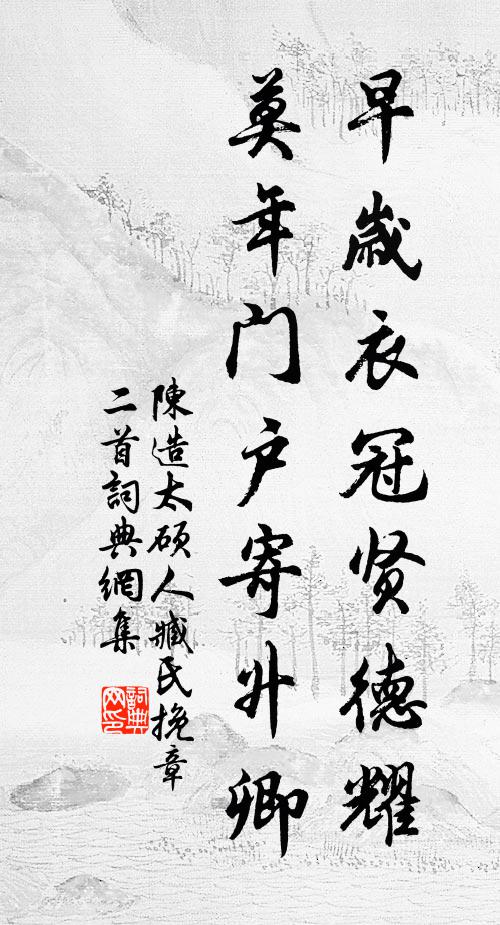 早歲衣冠贤德耀
莫年门户寄升卿
陳造太硕人臧氏挽章
二首詞典網集
詞典
网印